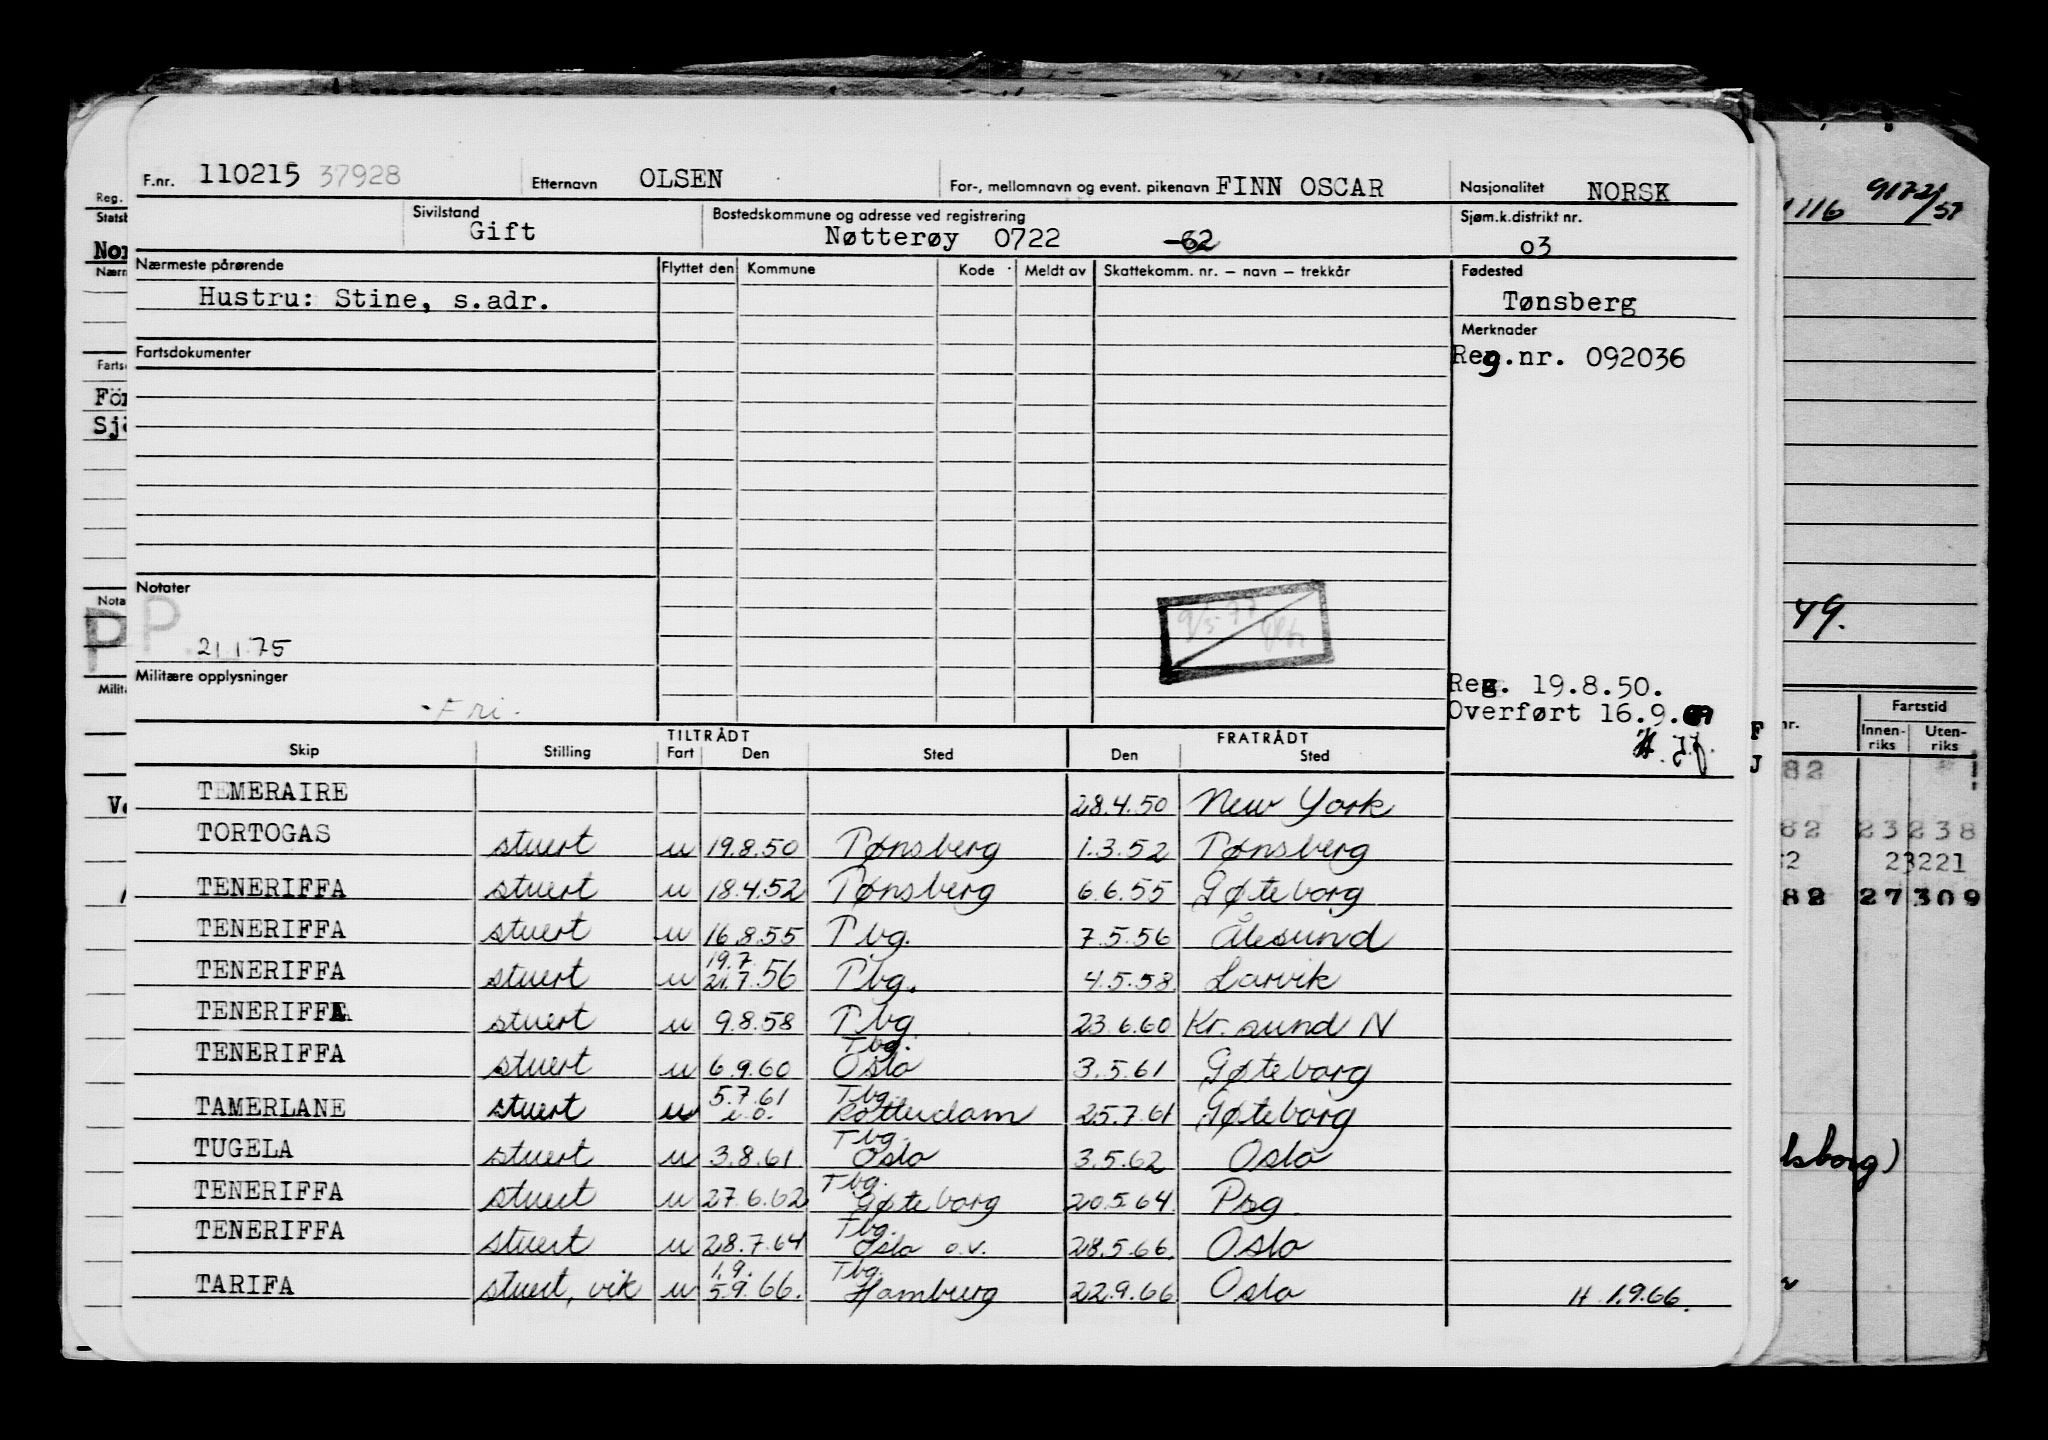 F.nr. 110215 37928 Etternavn OLSEN For-, mellomnavn og event. pikenavn FINN OSCAR Nasjonalitet NORSK
Sivilstand Bostedskommune og adresse ved registrering Sjøm.k.distrikt nr.
Gift Nøtterøy 0722 -62 03
Nærmeste pårørende Flyttet den Kommune Kode Meldt av Skattekomm. nr. – navn – trekkår Fødested
Hustru: Stine, s.adr. Tønsberg
Merknader
Fartsdokumenter Reg.nr. 092036
Notater
P.
21.1.75
Militære opplysninger
Reg. 19.8.50.
-Fri- Overført 16.9.69
H. J.f.
TILTRÅDT FRATRÅDT
Skip Stilling Fart Den Sted Den Sted
TEMERAIRE 28.4.50 New York
TORTOGAS stuert u 19.8.50 Tønsberg 1.3.52 Tønsberg
TENERIFFA stuert u 18.4.52 Tønsberg 6.6.55 Gøteborg
TENERIFFA stuert u 16.8.55 Tbg. 7.5.56 Ålesund
19.7
TENERIFFA stuert u 21.7.56 Tbg. 4.5.58 Larvik
TENERIFFA stuert u 9.8.58 Tbg 23.6.60 Kr. sund N
Tbg.
TENERIFFA stuert u 6.9.60 Oslo 3.5.61 Gøteborg
5.7.61 Tbg.
TAMERLANE stuert u u.o. Rotterdam 25.7.61 Gøteborg
Tbg.
TUGELA stuert u 3.8.61 Oslo 3.5.62 Oslo
Tbg.
TENERIFFA stuert u 27.6.62 Gøteborg 20.5.64 Psg.
Tbg.
TENERIFFA stuert u 28.7.64 Oslo o.v. 28.5.66. Oslo
1.9. Tbg.
TARIFA stuert, vik u 5.9.66. Hamburg 22.9.66 Oslo H 1.9.66.
Reg.
Statsb
Nor
Nærm
Farts
För
Sjö
Nota
P
Milit
F
J
116 9172/57
49.
Fartstid
nr. Innen-riks Uten-riks
82
82 23 238
2 23221
82 27 309
lsborg)